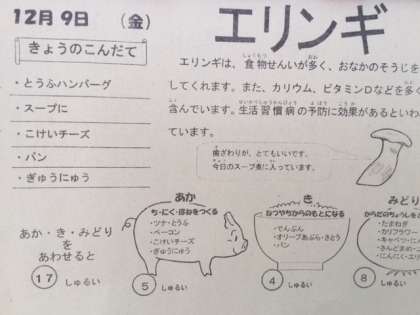 12月9日 (金)
きょうのこんだて
・とうふハンバーグ
・スープに
・こけいチーズ
・パン
・ぎゅうにゅう
エリンギ
エリンギは、食物せんいが多く、おなかのそうじを
してくれます。また、カリウム、ビタミンDなどを多く
含んでいます。生活習慣病の予防に効果があるといわ
ています。
歯ざわりが、とてもいいです。
今日のスープ煮に入っています。
あか・き・みどり
を
あわせると
17 しゅるい
あか
ち・にく・ほねをつくる
・ツナ・とうふ
・ベーコン
・こけいチーズ
・ぎゅうにゅう
5 しゅるい
き
ねつやちからのもとになる
・でんぷん
・オリーブあぶら・さとう
・パン
4 しゅるい
みどり
からだのちょうしをと
・たまねぎ
・カリフラワー
・キャベツ・にん
・さんどまめ・エ
・にんにく・エリ
8 しゅるい